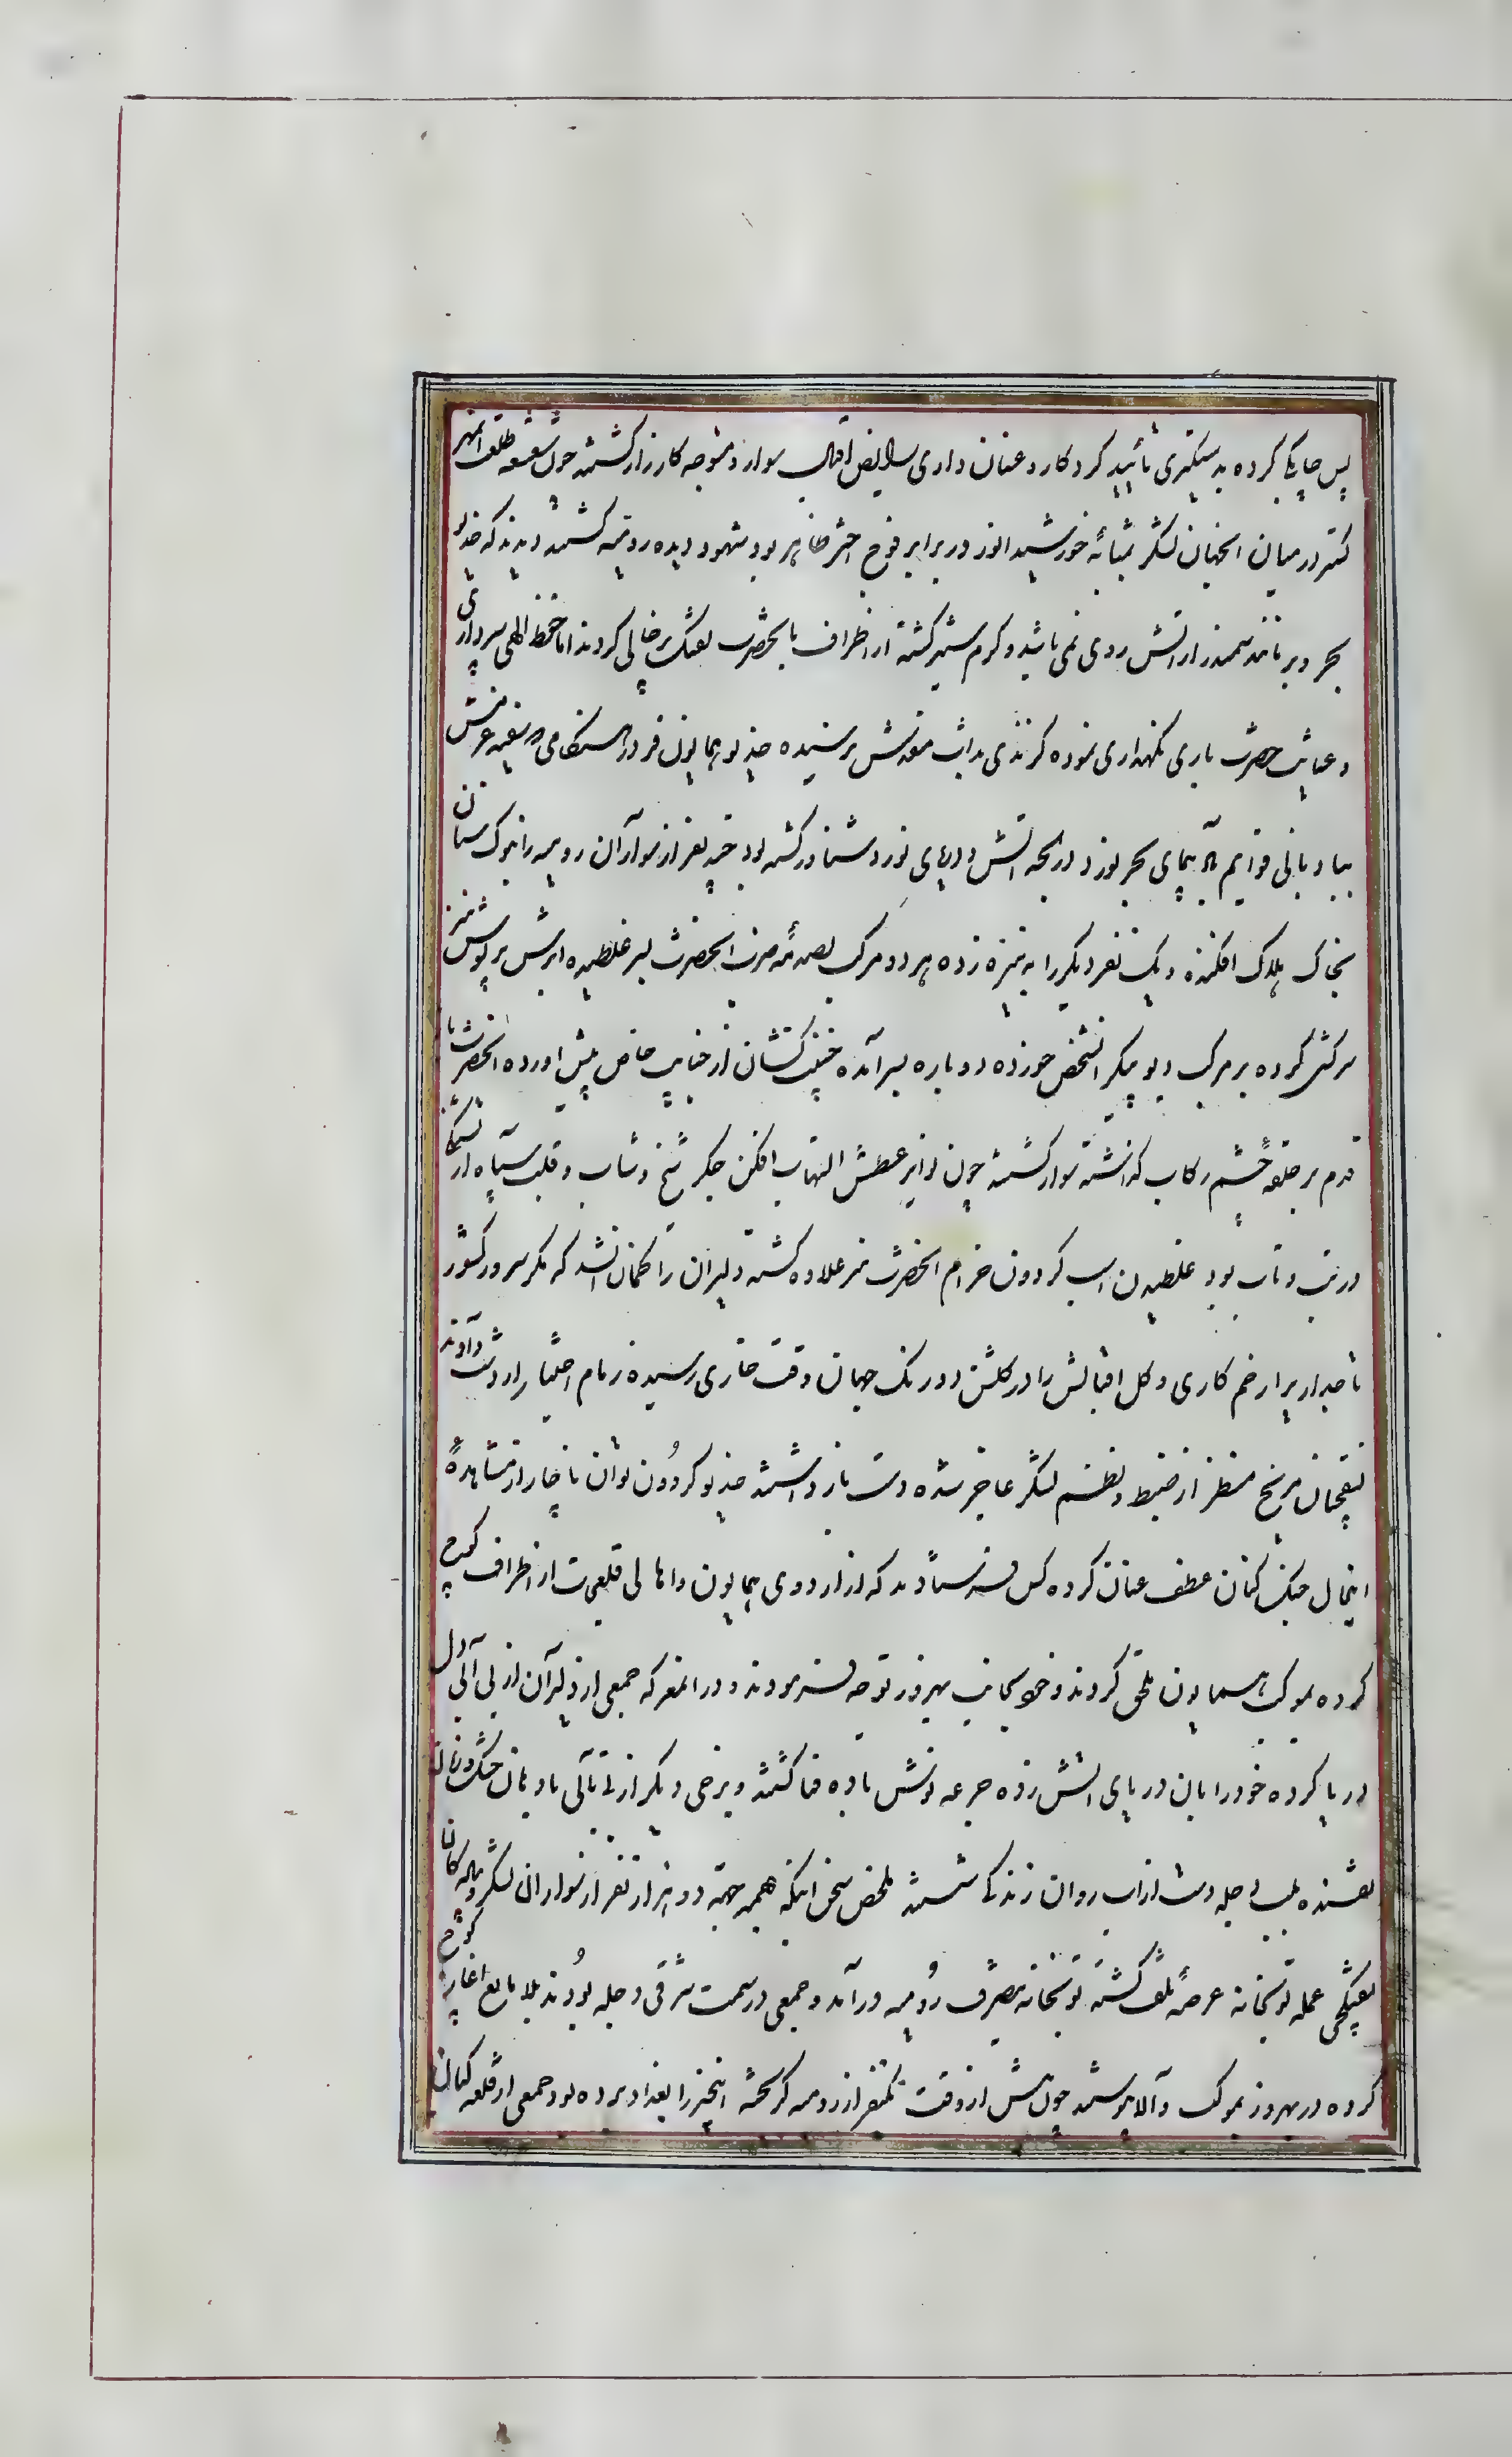 پس چابکی کرده بدستگیری تأیید کردکار و عنان داری رایض اقبال سوار و متوجه کارزار کشتند چون شعشعه طلعت انمهر
کستر در میان انجهان لشکر بمثابهٔ خورشید انور در برابر فوج اختر ظاهر بود مشهود دیده رومیه کشته دیدند که خدیو
بحر و بر مانند سمندر از اتش روی نمی تابد و کرم ستیز کشته از اطراف بانحضرت تفنک خالی کردند اما حفظ الهی سپرداری
و عنایت حضرت باری نکهداری نموده کزندی بذات مقدسش نرسیده خدیو همایون فر در هنکامی که سفینه عزمش
ببادبانی قوایم باد پیمای بحر نورد در لجه اتش و دریای نورد شناور کشته بود چند نفر از سواران رومیه را بنوک سنان
بخاک هلاک افکنده و یک نفر دیکر را به نیزه زده هر دو مرکب بصدمه ضرب انحضرت بسر غلطیده ابرش پرجوش نیز
سرکشی کرده بر مرکب دیو پیکر انشخص خورده دوباره بسر آمده جنیبت کشان از جنایب خاص پیش اورده انحضرت با
قدم بر حلقهٔ چشم رکاب کذاشته سوار کشتند چون نوایر عطش التهاب افکن جکر شیخ و شاب و قلب سپاه از تشنکی
در تب و تاب بود غلطیدن اسب کردون خرام انحضرت نیز علاوه کشته دلیران را کمان انشد که مکر سرور کشور
تاجداری را زخم کاری و کل اقبالش را در کلشن دو رنک جهان وقت خاری رسیده زمام اختیار از دست داده اند
نسقچیان مریخ منظر از ضبط و نظم لشکر عاجز شده دست باز داشتند خدیو کردون توان ناچار از مشاهدهٔ
اینحال جنک کنان عطف عنان کرده کس فرستادند که از اردوی همایون و اهالی قلعجات از اطراف کوچ
کرده بموکب همایون ملحق کردند و خود بجانب بهروز توجه فرمودند و در انمعرکه جمعی از دلیران از بی آبی دل
دریا کرده خود را بان دریای اتش زده جرعه نوش باده فنا کشتند و برخی دیکر از بی تابی با دهان خشک و زبان
تفسنده بلب دجله دست از اب روان زندکی شستند ملخص سخن اینکه همه جهته دو هزار نفر از سواران لشکر و پیادکان
تفنکچی عمله توپخانه عرصهٔ تلف کشته توپخانه بتصرف رومیه در آمد و جمعی در سمت شرقی دجله بودند بلا مانع اغاز کوچ
کرده در بهروز بموکب والا پیوستند چون پیش از وقت یکنفر از رومیه کریخته اینخبر را ببغداد برده بود جمعی از قلعه کیان